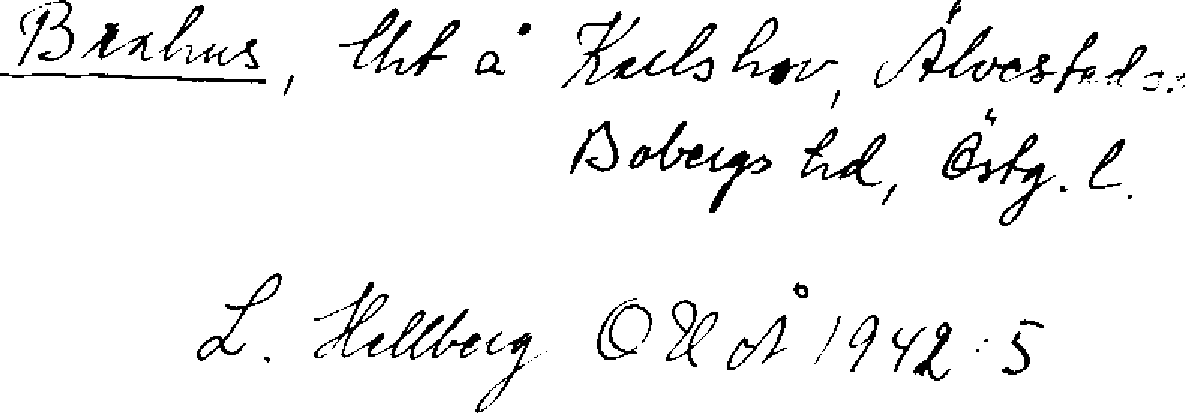 Brahus, lht å Kulshov, Älvestad
Bobergs hd, Östg. l.
L. Hellberg OUÅ 1942:5